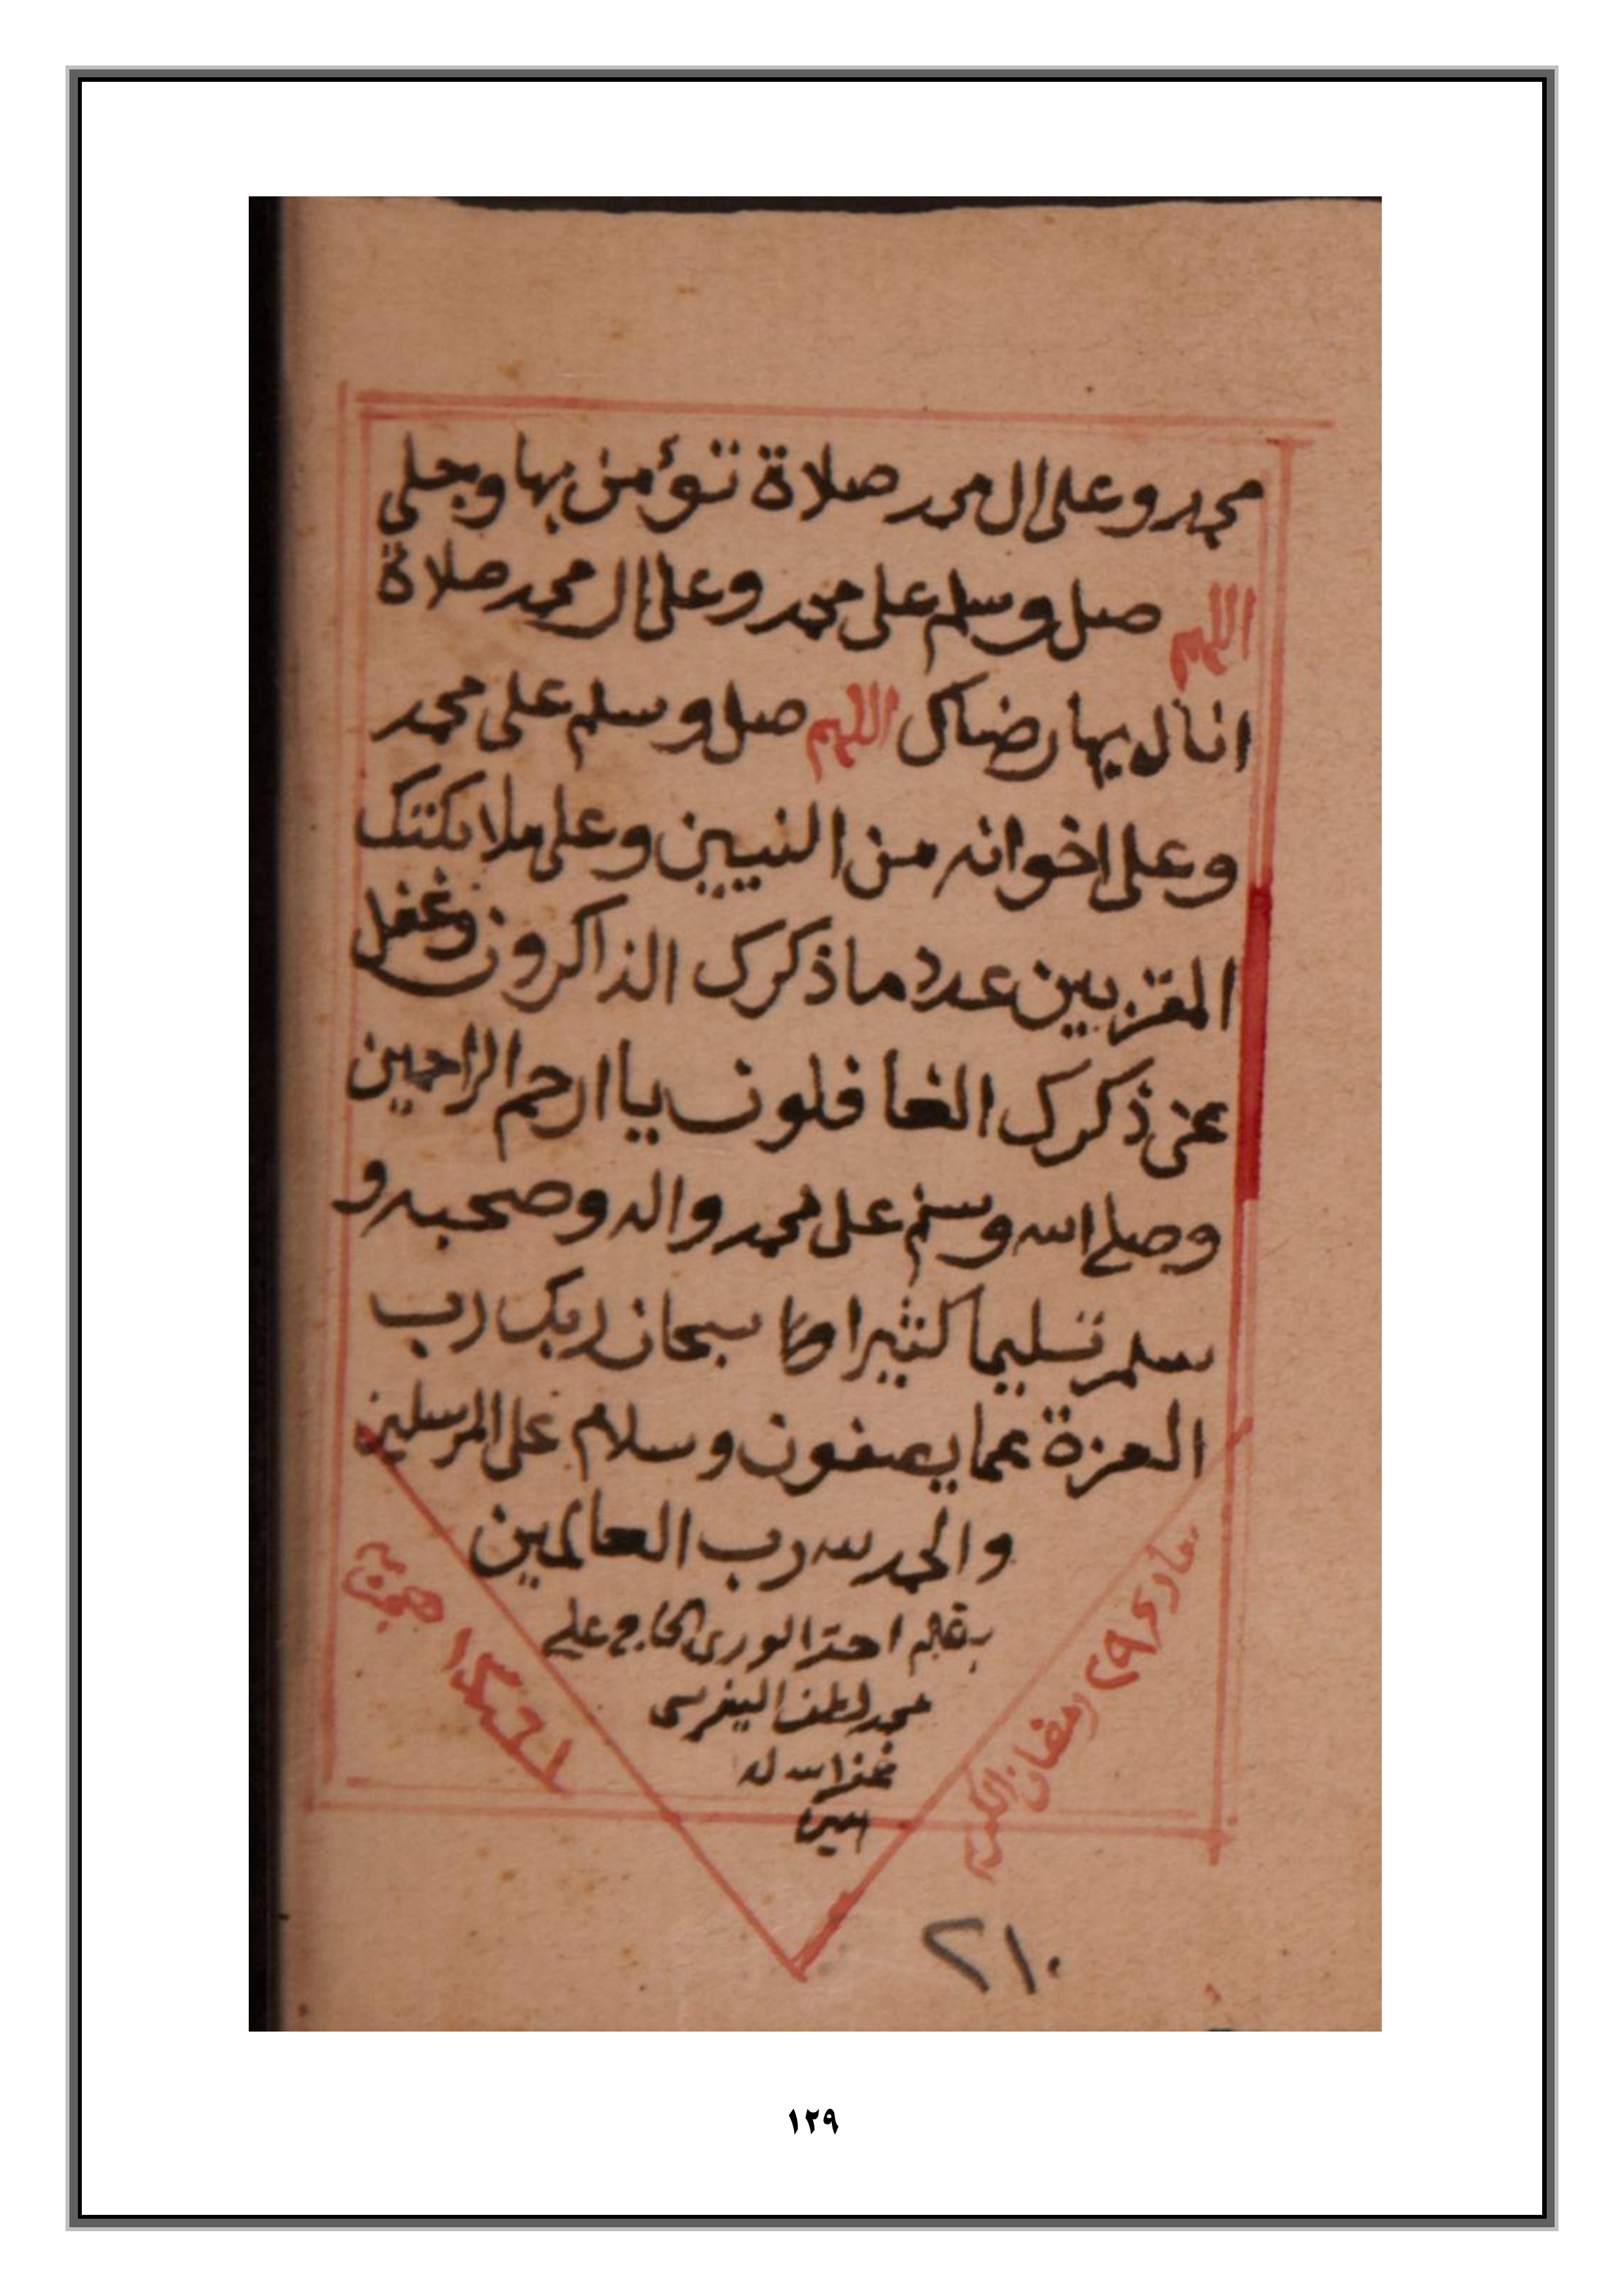 محمد وعلى ال محمد صلاة تؤمن بها وجلي
اللهم صل وسلم على محمد وعلى ال محمد صلاة
انال بها رضاك اللهم صل وسلم على محمد
وعلى اخوانه من النبيين وعلى ملائكتك
المقربين عدد ما ذكرك الذاكرون وغفل
عن ذكرك الغافلون يا ارحم الراحمين
وصلى الله وسلم على محمد واله وصحبه و
سلم تسليما كثيرا سبحان ربك رب
العزة عما يصفون وسلام على المرسلين
والحمد لله رب العالمين
بقلم احقر الورى الحاج علي
محمد لطف اليفرسي
غفر الله له
امين
٢٩ رمضان الكريم
هجرية
٢١٠
١٢٩